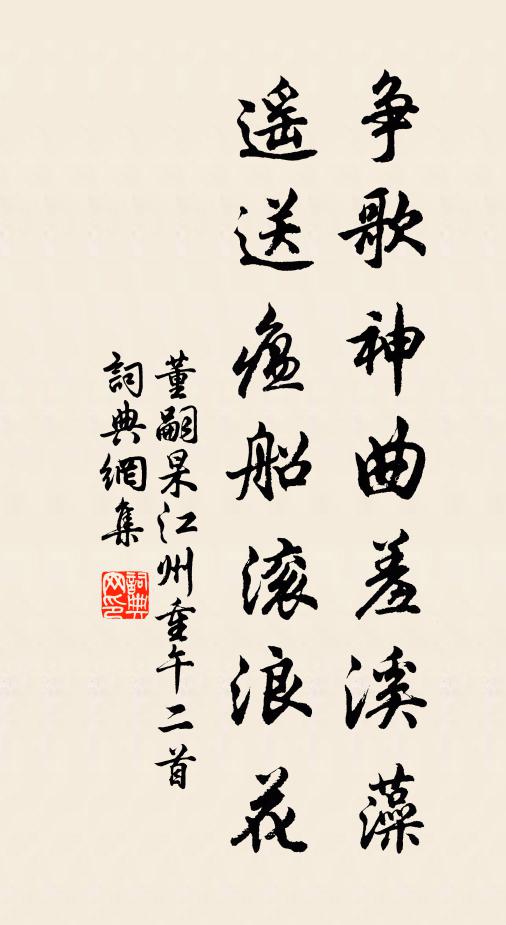 争歌神曲羞溪藻
遥送瘟船滚浪花
董嗣杲江州重午二首
詞典網集
詞典网印